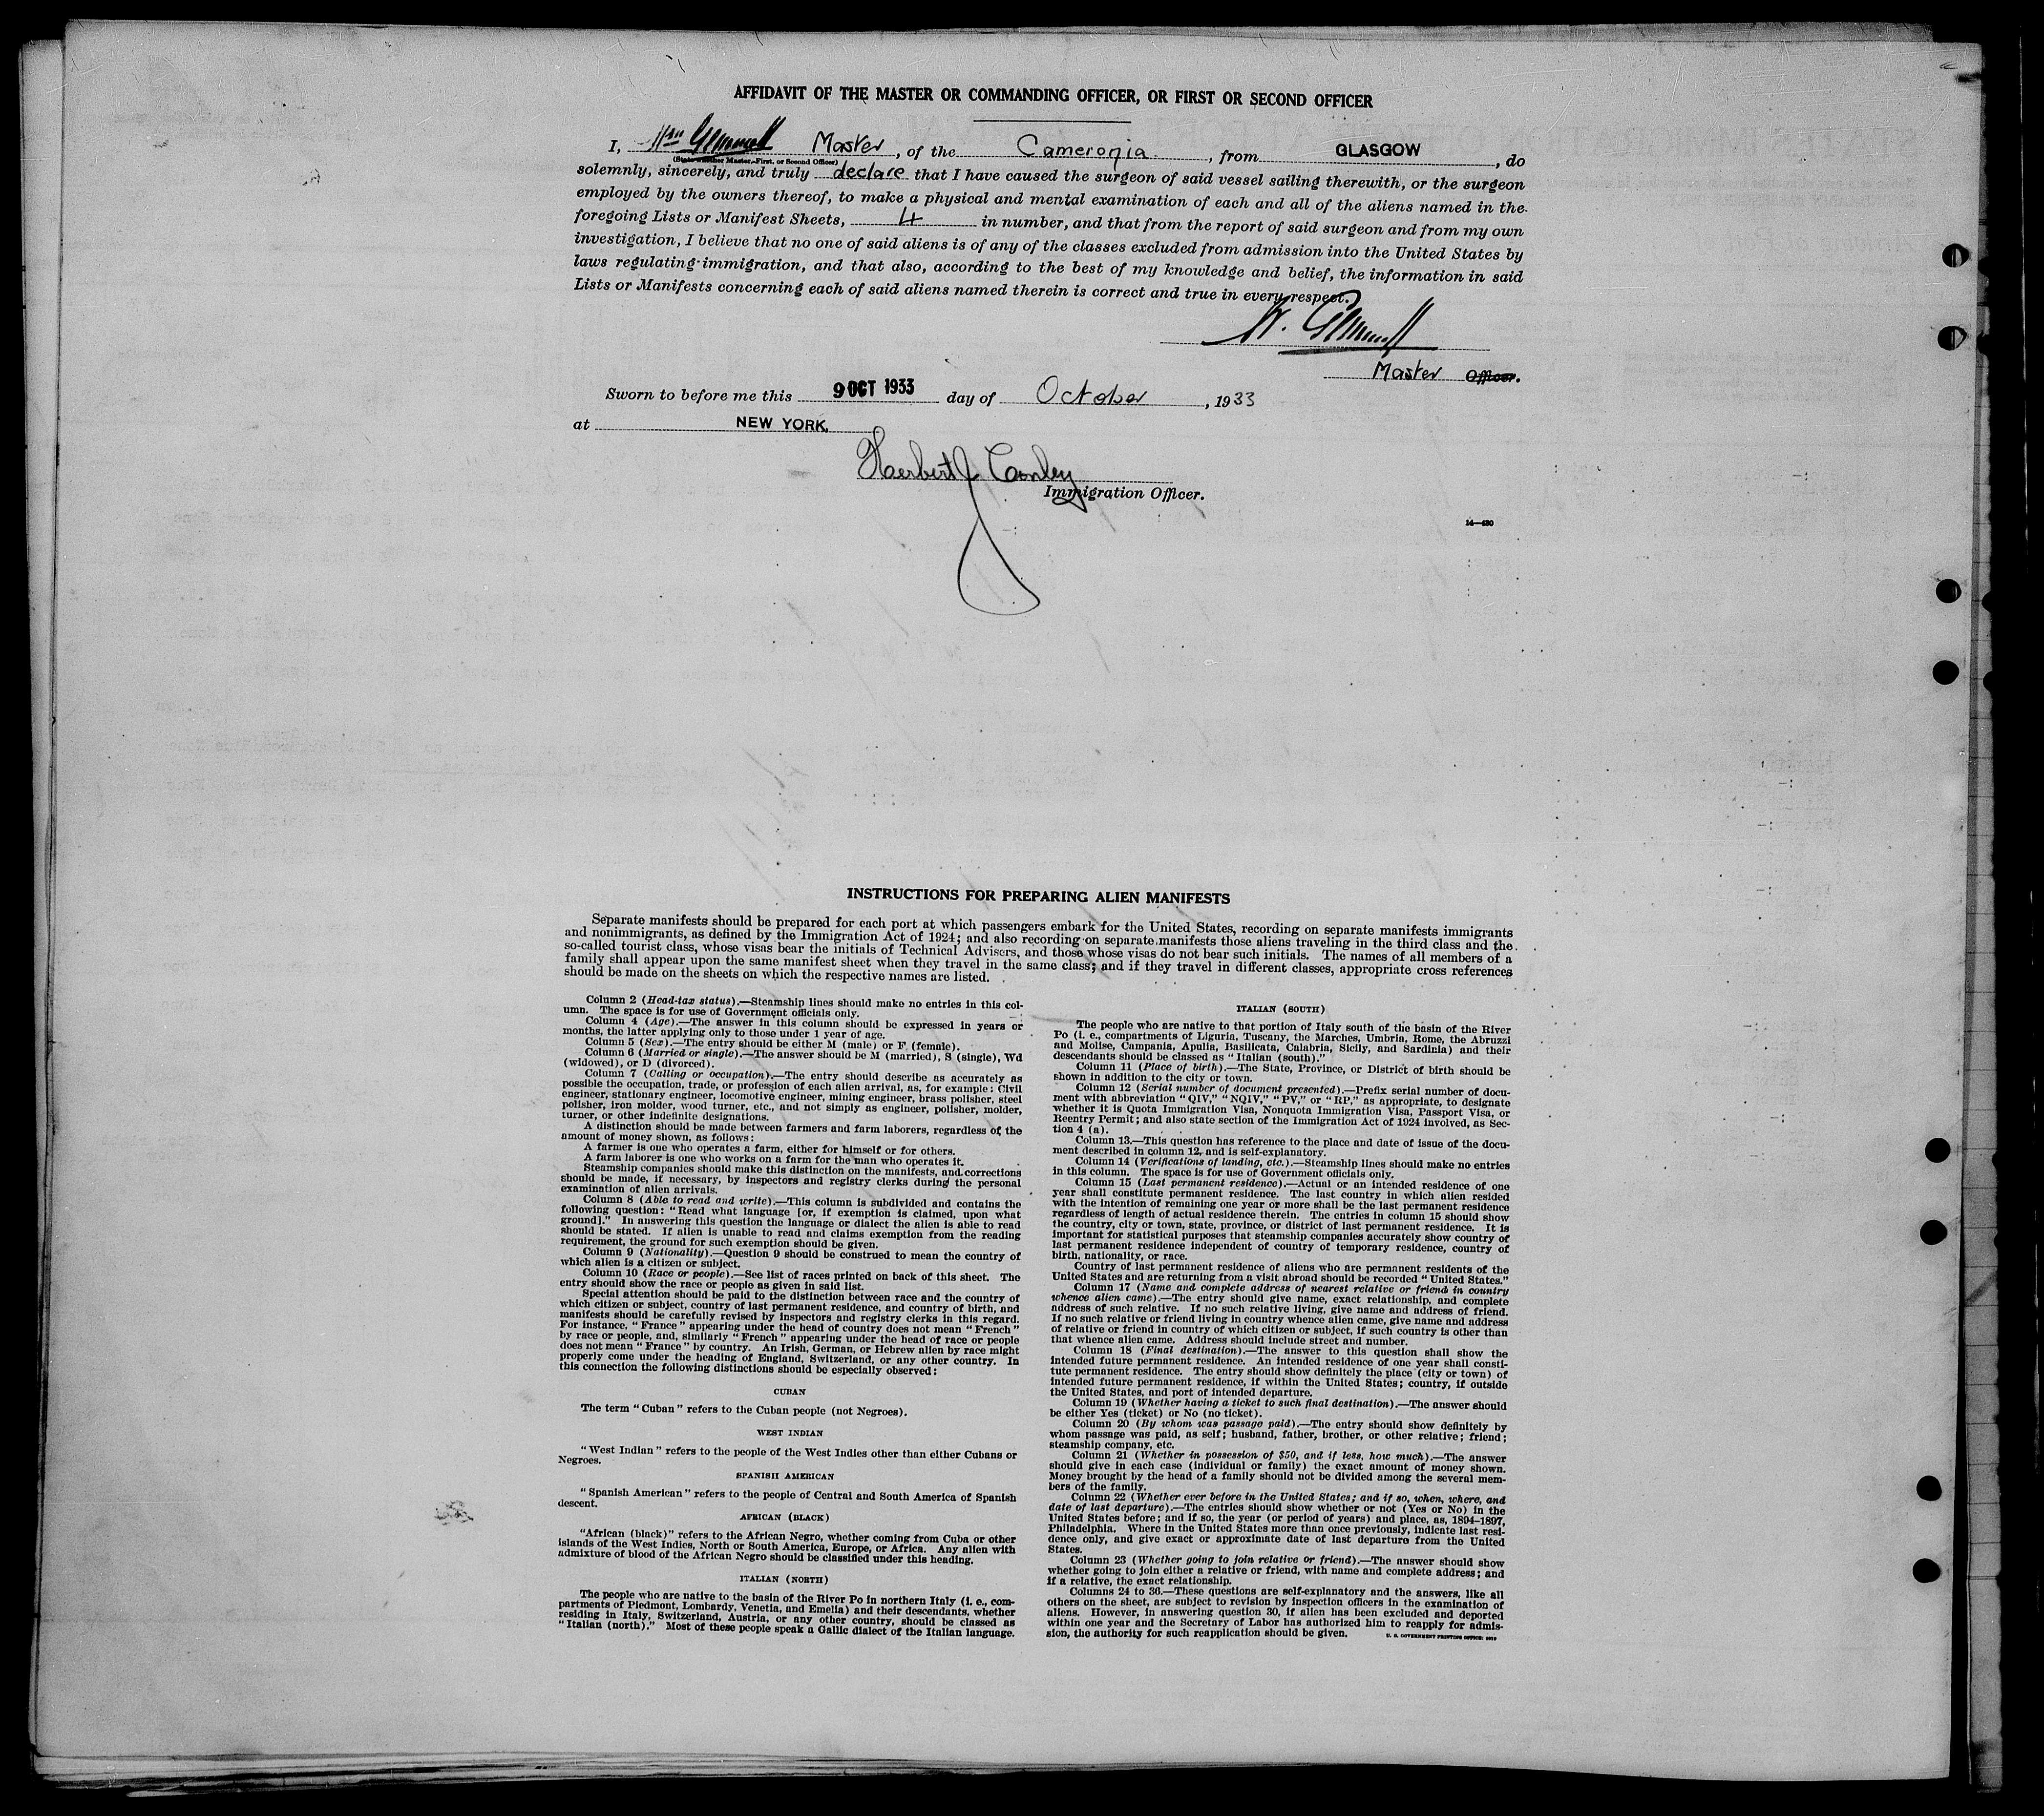 AFFIDAVIT OF THE MASTER OR COMMANDING OFFICER, OR FIRST OR SECOND OFFICER
I, Wm Gemmell Master, of the Cameronia, from GLASGOW, do
(State whether Master, First, or Second Officer)
solemnly, sincerely, and truly declare that I have caused the surgeon of said vessel sailing therewith, or the surgeon
employed by the owners thereof, to make a physical and mental examination of each and all of the aliens named in the
foregoing Lists or Manifest Sheets, 4 in number, and that from the report of said surgeon and from my own
investigation, I believe that no one of said aliens is of any of the classes excluded from admission into the United States by
laws regulating immigration, and that also, according to the best of my knowledge and belief, the information in said
Lists or Manifests concerning each of said aliens named therein is correct and true in every respect.
W. Gemmell
Master Officer.
Sworn to before me this 9 OCT 1933 day of October, 1933
at NEW YORK.
Herbert J Conley
Immigration Officer.
14—430
INSTRUCTIONS FOR PREPARING ALIEN MANIFESTS
Separate manifests should be prepared for each port at which passengers embark for the United States, recording on separate manifests immigrants
and nonimmigrants, as defined by the Immigration Act of 1924; and also recording on separate manifests those aliens traveling in the third class and the
so-called tourist class, whose visas bear the initials of Technical Advisers, and those whose visas do not bear such initials. The names of all members of a
family shall appear upon the same manifest sheet when they travel in the same class; and if they travel in different classes, appropriate cross references
should be made on the sheets on which the respective names are listed.
Column 2 (Head-tax status).—Steamship lines should make no entries in this col-
umn. The space is for use of Government officials only.
Column 4 (Age).—The answer in this column should be expressed in years or
months, the latter applying only to those under 1 year of age.
Column 5 (Sex).—The entry should be either M (male) or F (female).
Column 6 (Married or single).—The answer should be M (married), S (single), Wd
(widowed), or D (divorced).
Column 7 (Calling or occupation).—The entry should describe as accurately as
possible the occupation, trade, or profession of each alien arrival, as, for example: Civil
engineer, stationary engineer, locomotive engineer, mining engineer, brass polisher, steel
polisher, iron molder, wood turner, etc., and not simply as engineer, polisher, molder,
turner, or other indefinite designations.
A distinction should be made between farmers and farm laborers, regardless of the
amount of money shown, as follows:
A farmer is one who operates a farm, either for himself or for others.
A farm laborer is one who works on a farm for the man who operates it.
Steamship companies should make this distinction on the manifests, and corrections
should be made, if necessary, by inspectors and registry clerks during the personal
examination of alien arrivals.
Column 8 (Able to read and write).—This column is subdivided and contains the
following question: "Read what language [or, if exemption is claimed, upon what
ground]." In answering this question the language or dialect the alien is able to read
should be stated. If alien is unable to read and claims exemption from the reading
requirement, the ground for such exemption should be given.
Column 9 (Nationality).—Question 9 should be construed to mean the country of
which alien is a citizen or subject.
Column 10 (Race or people).—See list of races printed on back of this sheet. The
entry should show the race or people as given in said list.
Special attention should be paid to the distinction between race and the country of
which citizen or subject, country of last permanent residence, and country of birth, and
manifests should be carefully revised by inspectors and registry clerks in this regard.
For instance, "France" appearing under the head of country does not mean "French"
by race or people, and, similarly "French" appearing under the head of race or people
does not mean "France" by country. An Irish, German, or Hebrew alien by race might
properly come under the heading of England, Switzerland, or any other country. In
this connection the following distinctions should be especially observed:
CUBAN
The term "Cuban" refers to the Cuban people (not Negroes).
WEST INDIAN
"West Indian" refers to the people of the West Indies other than either Cubans or
Negroes.
SPANISH AMERICAN
"Spanish American" refers to the people of Central and South America of Spanish
descent.
AFRICAN (BLACK)
"African (black)" refers to the African Negro, whether coming from Cuba or other
islands of the West Indies, North or South America, Europe, or Africa. Any alien with
admixture of blood of the African Negro should be classified under this heading.
ITALIAN (NORTH)
The people who are native to the basin of the River Po in northern Italy (i. e., com-
partments of Piedmont, Lombardy, Venetia, and Emelia) and their descendants, whether
residing in Italy, Switzerland, Austria, or any other country, should be classed as
"Italian (north)." Most of these people speak a Gallic dialect of the Italian language.
ITALIAN (SOUTH)
The people who are native to that portion of Italy south of the basin of the River
Po (i. e., compartments of Liguria, Tuscany, the Marches, Umbria, Rome, the Abruzzi
and Molise, Campania, Apulia, Basilicata, Calabria, Sicily, and Sardinia) and their
descendants should be classed as "Italian (south)."
Column 11 (Place of birth).—The State, Province, or District of birth should be
shown in addition to the city or town.
Column 12 (Serial number of document presented).—Prefix serial number of docu-
ment with abbreviation "QIV," "NQIV," "PV," or "RP," as appropriate, to designate
whether it is Quota Immigration Visa, Nonquota Immigration Visa, Passport Visa, or
Reentry Permit; and also state section of the Immigration Act of 1924 involved, as Sec-
tion 4 (a).
Column 13.—This question has reference to the place and date of issue of the docu-
ment described in column 12, and is self-explanatory.
Column 14 (Verifications of landing, etc.).—Steamship lines should make no entries
in this column. The space is for use of Government officials only.
Column 15 (Last permanent residence).—Actual or an intended residence of one
year shall constitute permanent residence. The last country in which alien resided
with the intention of remaining one year or more shall be the last permanent residence
regardless of length of actual residence therein. The entries in column 15 should show
the country, city or town, state, province, or district of last permanent residence. It is
important for statistical purposes that steamship companies accurately show country of
last permanent residence independent of country of temporary residence, country of
birth, nationality, or race.
Country of last permanent residence of aliens who are permanent residents of the
United States and are returning from a visit abroad should be recorded "United States."
Column 17 (Name and complete address of nearest relative or friend in country
whence alien came).—The entry should give name, exact relationship, and complete
address of such relative. If no such relative living, give name and address of friend.
If no such relative or friend living in country whence alien came, give name and address
of relative or friend in country of which citizen or subject, if such country is other than
that whence alien came. Address should include street and number.
Column 18 (Final destination).—The answer to this question shall show the
intended future permanent residence. An intended residence of one year shall consti-
tute permanent residence. The entry should show definitely the place (city or town) of
intended future permanent residence, if within the United States; country, if outside
the United States, and port of intended departure.
Column 19 (Whether having a ticket to such final destination).—The answer should
be either Yes (ticket) or No (no ticket).
Column 20 (By whom was passage paid).—The entry should show definitely by
whom passage was paid, as self; husband, father, brother, or other relative; friend;
steamship company, etc.
Column 21 (Whether in possession of $50, and if less, how much).—The answer
should give in each case (individual or family) the exact amount of money shown.
Money brought by the head of a family should not be divided among the several mem-
bers of the family.
Column 22 (Whether ever before in the United States; and if so, when, where, and
date of last departure).—The entries should show whether or not (Yes or No) in the
United States before; and if so, the year (or period of years) and place, as, 1894–1897,
Philadelphia. Where in the United States more than once previously, indicate last resi-
dence only, and give exact or approximate date of last departure from the United
States.
Column 23 (Whether going to join relative or friend).—The answer should show
whether going to join either a relative or friend, with name and complete address; and
if a relative, the exact relationship.
Columns 24 to 36.—These questions are self-explanatory and the answers, like all
others on the sheet, are subject to revision by inspection officers in the examination of
aliens. However, in answering question 30, if alien has been excluded and deported
within one year and the Secretary of Labor has authorized him to reapply for admis-
sion, the authority for such reapplication should be given.
U. S. GOVERNMENT PRINTING OFFICE: